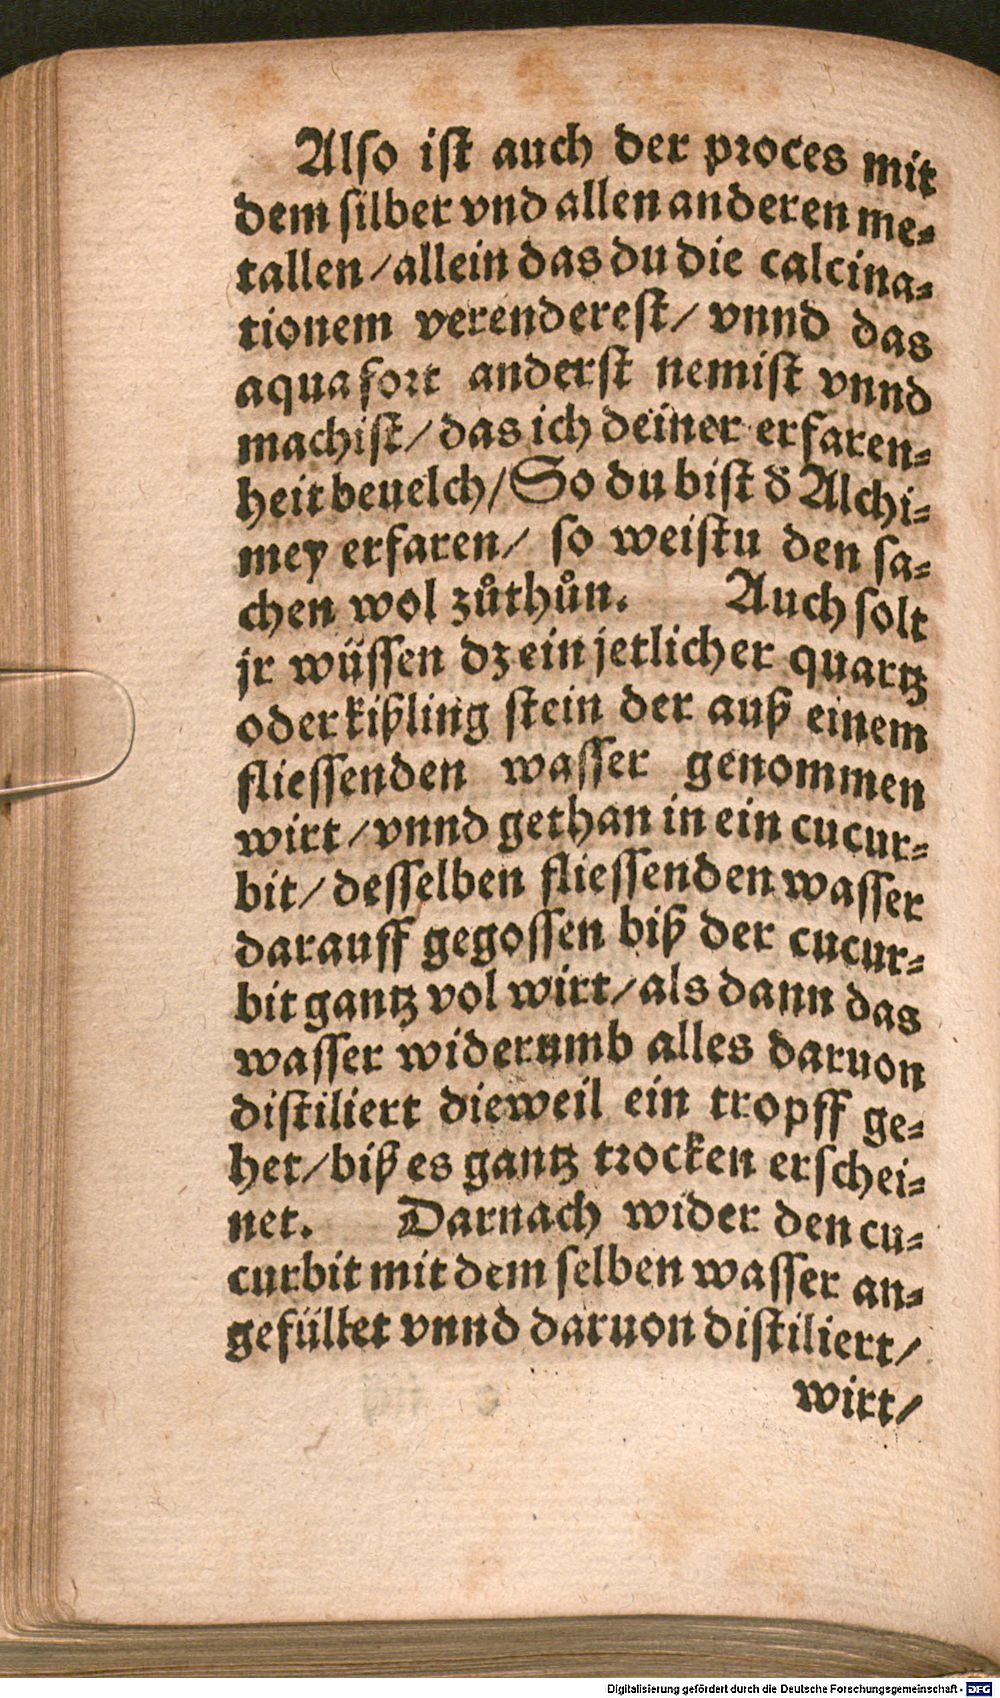 Also ist auch der proces mit
dem silber vnd allen anderen me⸗
tallen / allein das du die calcina⸗
tionem verenderest / vnnd das
aqua fort anderst nemist vnnd
machist / das ich deiner erfaren⸗
heit beuelch / So du bist d̕ Alchi⸗
mey erfaren / so weistu den sa⸗
chen wol zůthůn. Auch solt
jr wüssen dz ein jetlicher quartz
oder kißling stein der auß einem
fliessenden wasser genommen
wirt / vnnd gethan in ein cucur⸗
bit / desselben fliessenden wasser
darauff gegossen biß der cucur⸗
bit gantz vol wirt / als dann das
wasser widerumb alles daruon
distiliert dieweil ein tropff ge⸗
het / biß es gantz trocken erschei⸗
net. Darnach wider den cu⸗
curbit mit dem selben wasser an⸗
gefüllet vnnd daruon distiliert /
wirt /
Digitalisierung gefördert durch die Deutsche Forschungsgemeinschaft - DFG